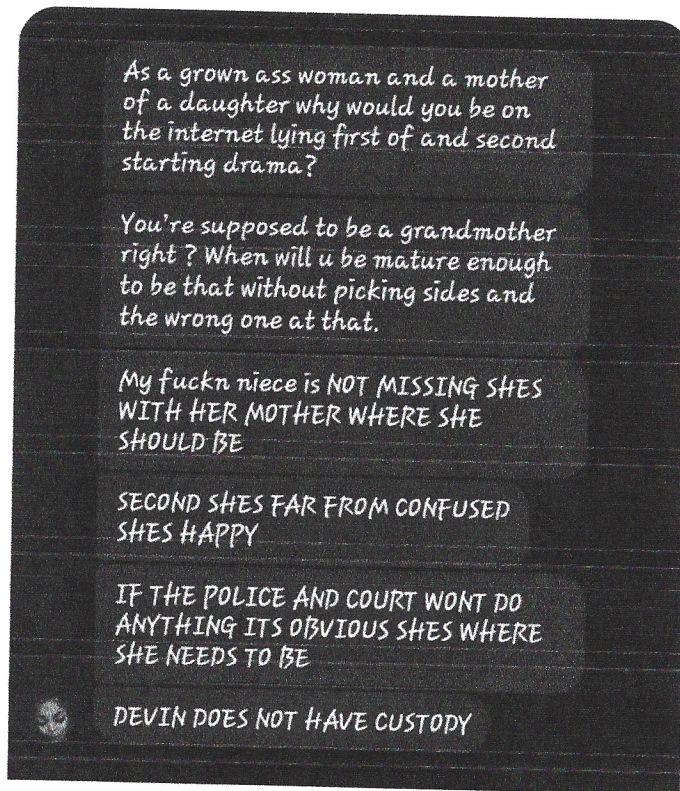 As a grown ass woman and a mother
of a daughter why would you be on
the internet lying first of and second
starting drama?
You're supposed to be a grandmother
right ? When will u be mature enough
to be that without picking sides and
the wrong one at that.
My fuckn niece is NOT MISSING SHES
WITH HER MOTHER WHERE SHE
SHOULD BE
SECOND SHES FAR FROM CONFUSED
SHES HAPPY
IF THE POLICE AND COURT WONT DO
ANYTHING ITS OBVIOUS SHES WHERE
SHE NEEDS TO BE
DEVIN DOES NOT HAVE CUSTODY